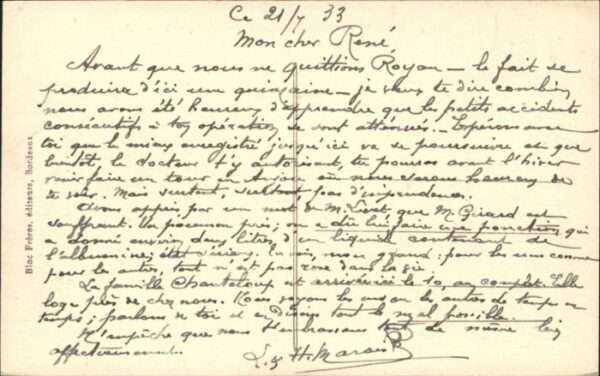 Ce 21/7 33
Mon cher René,
Avant que nous ne quittions Royan — le fait se
produira d'ici une quinzaine — je veux te dire combien
nous avons été heureux d'apprendre que les petits accidents
consécutifs à ton opération se sont atténués. Espérons avec
toi que le mieux enregistré jusqu'ici va se poursuivre et que
bientôt, le docteur t'y autorisant, tu pourras avant l'hiver
venir faire un tour en Anjou où nous serons heureux de
te voir. Mais surtout, surtout, pas d'imprudence.
Avons appris par un mot de M. que M. Girard est
souffrant. Un poumon pris; on a dû lui faire une ponction qui
a donné environ deux litres d'un liquide contenant de
l'albumine; pour les uns comme
pour les autres, tout n'est pas rose dans la vie.
La famille Chanteloup est arrivée ici le 10, au complet. Elle
loge près de chez nous. Nous voyons les uns ou les autres de temps en
temps; parlons de toi et en disons tout le mal possible.
N'empêche que nous t'embrassons tout de même bien
affectueusement.
L. & H.
Bloc Frères, éditeurs, Bordeaux